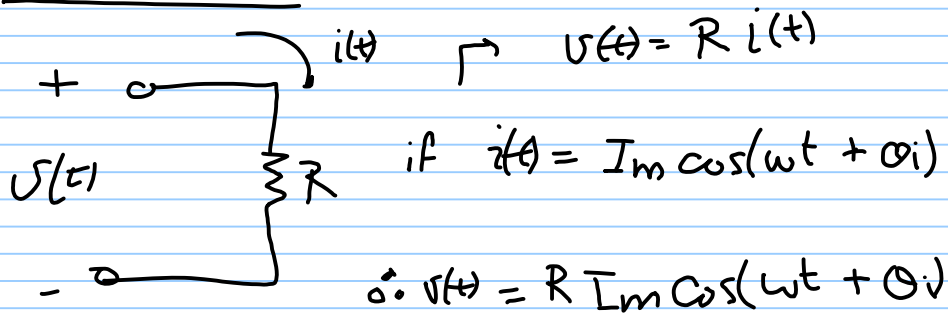 i(t) v(t) = R i(t)
+
if i(t) = Im cos(ωt + θi)
v(t) R
- ∴ v(t) = R Im Cos(ωt + θi)